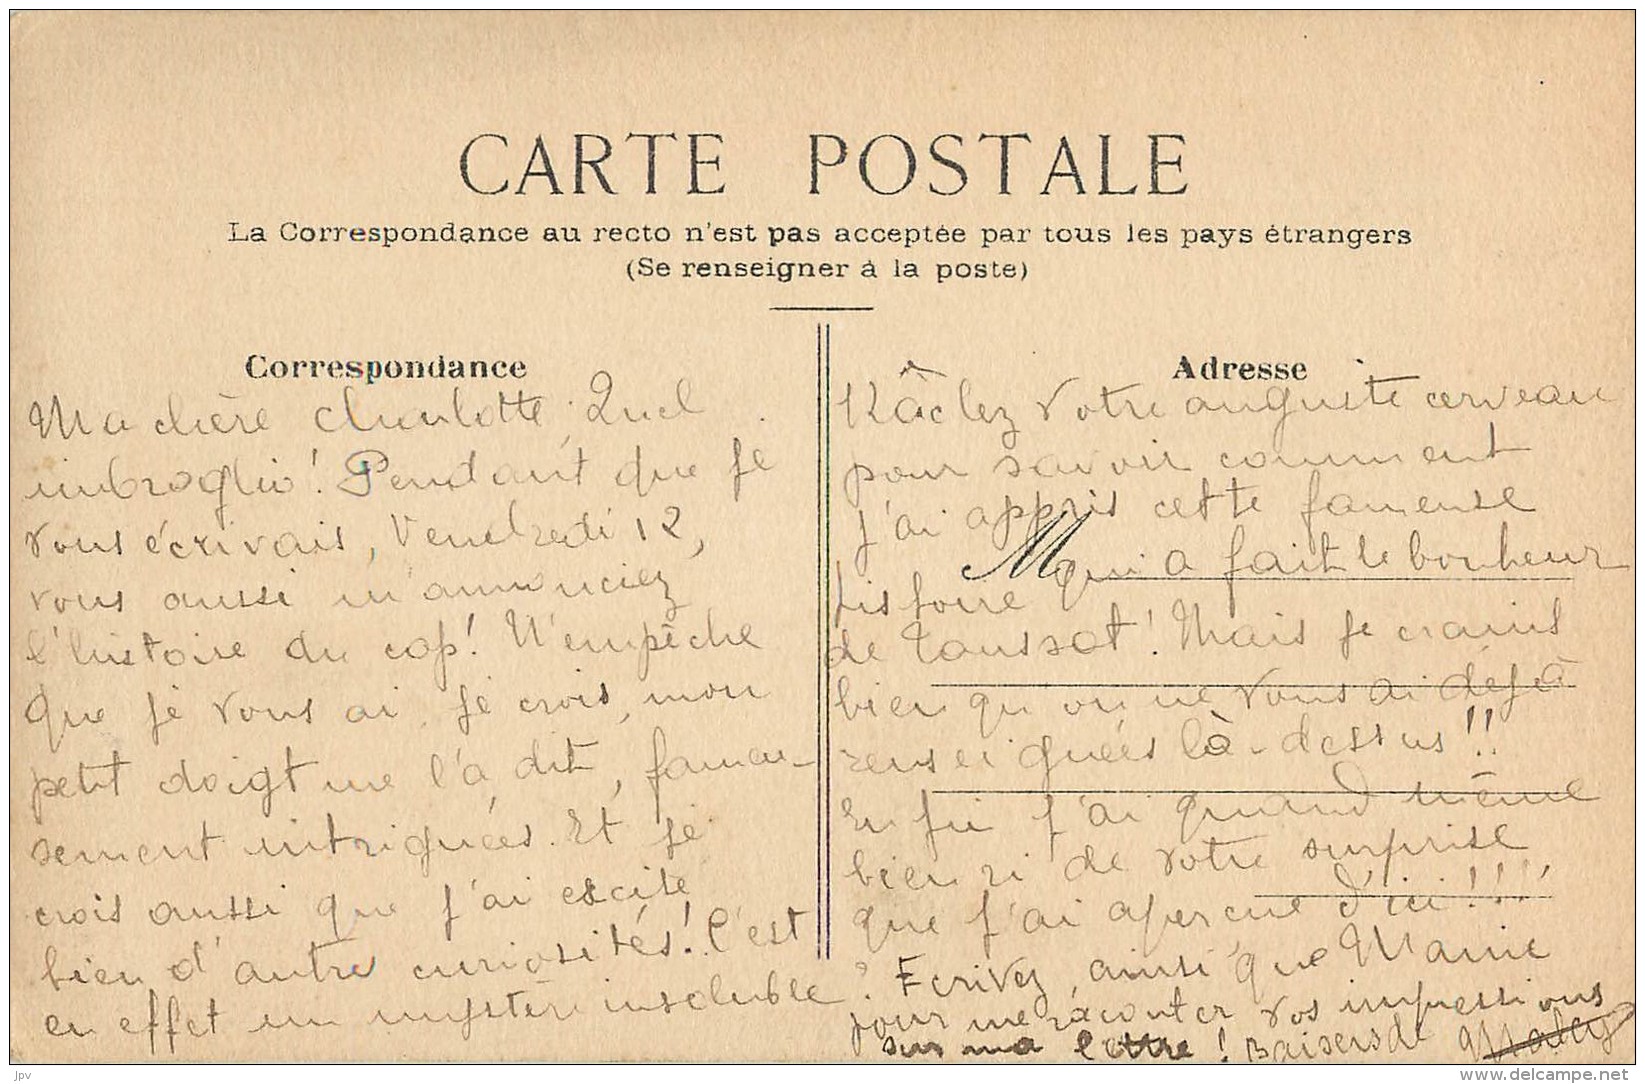 CARTE POSTALE
La Correspondance au recto n'est pas acceptée par tous les pays étrangers
(Se renseigner à la poste)
Correspondance
Ma chère Charlotte, Quel
imbroglio! Pendant que je
vous écrivais, Vendredi 12,
vous aussi m'annonciez
l'histoire du cop! N'empêche
que je vous ai, je crois, mon
petit doigt me l'a dit, fameu-
sement intriguées. Et je
crois aussi que j'ai excité
bien d'autres curiosités! C'est
en effet un mystère insoluble?
Adresse
Râclez votre auguste cerveau
pour savoir comment
j'ai appris cette fameuse
M
histoire qui a fait le bonheur
de Toussot! Mais je crains
bien qu'on ne vous ai déjà
renseignées là-dessus!!
Enfin j'ai quand même
bien ri de votre surprise
que j'ai aperçue d'ici!!!!
Ecrivez, ainsi que Mamie
pour me raconter vos impressions
sur ma lettre! Baisers de
jpv
www.delcampe.net